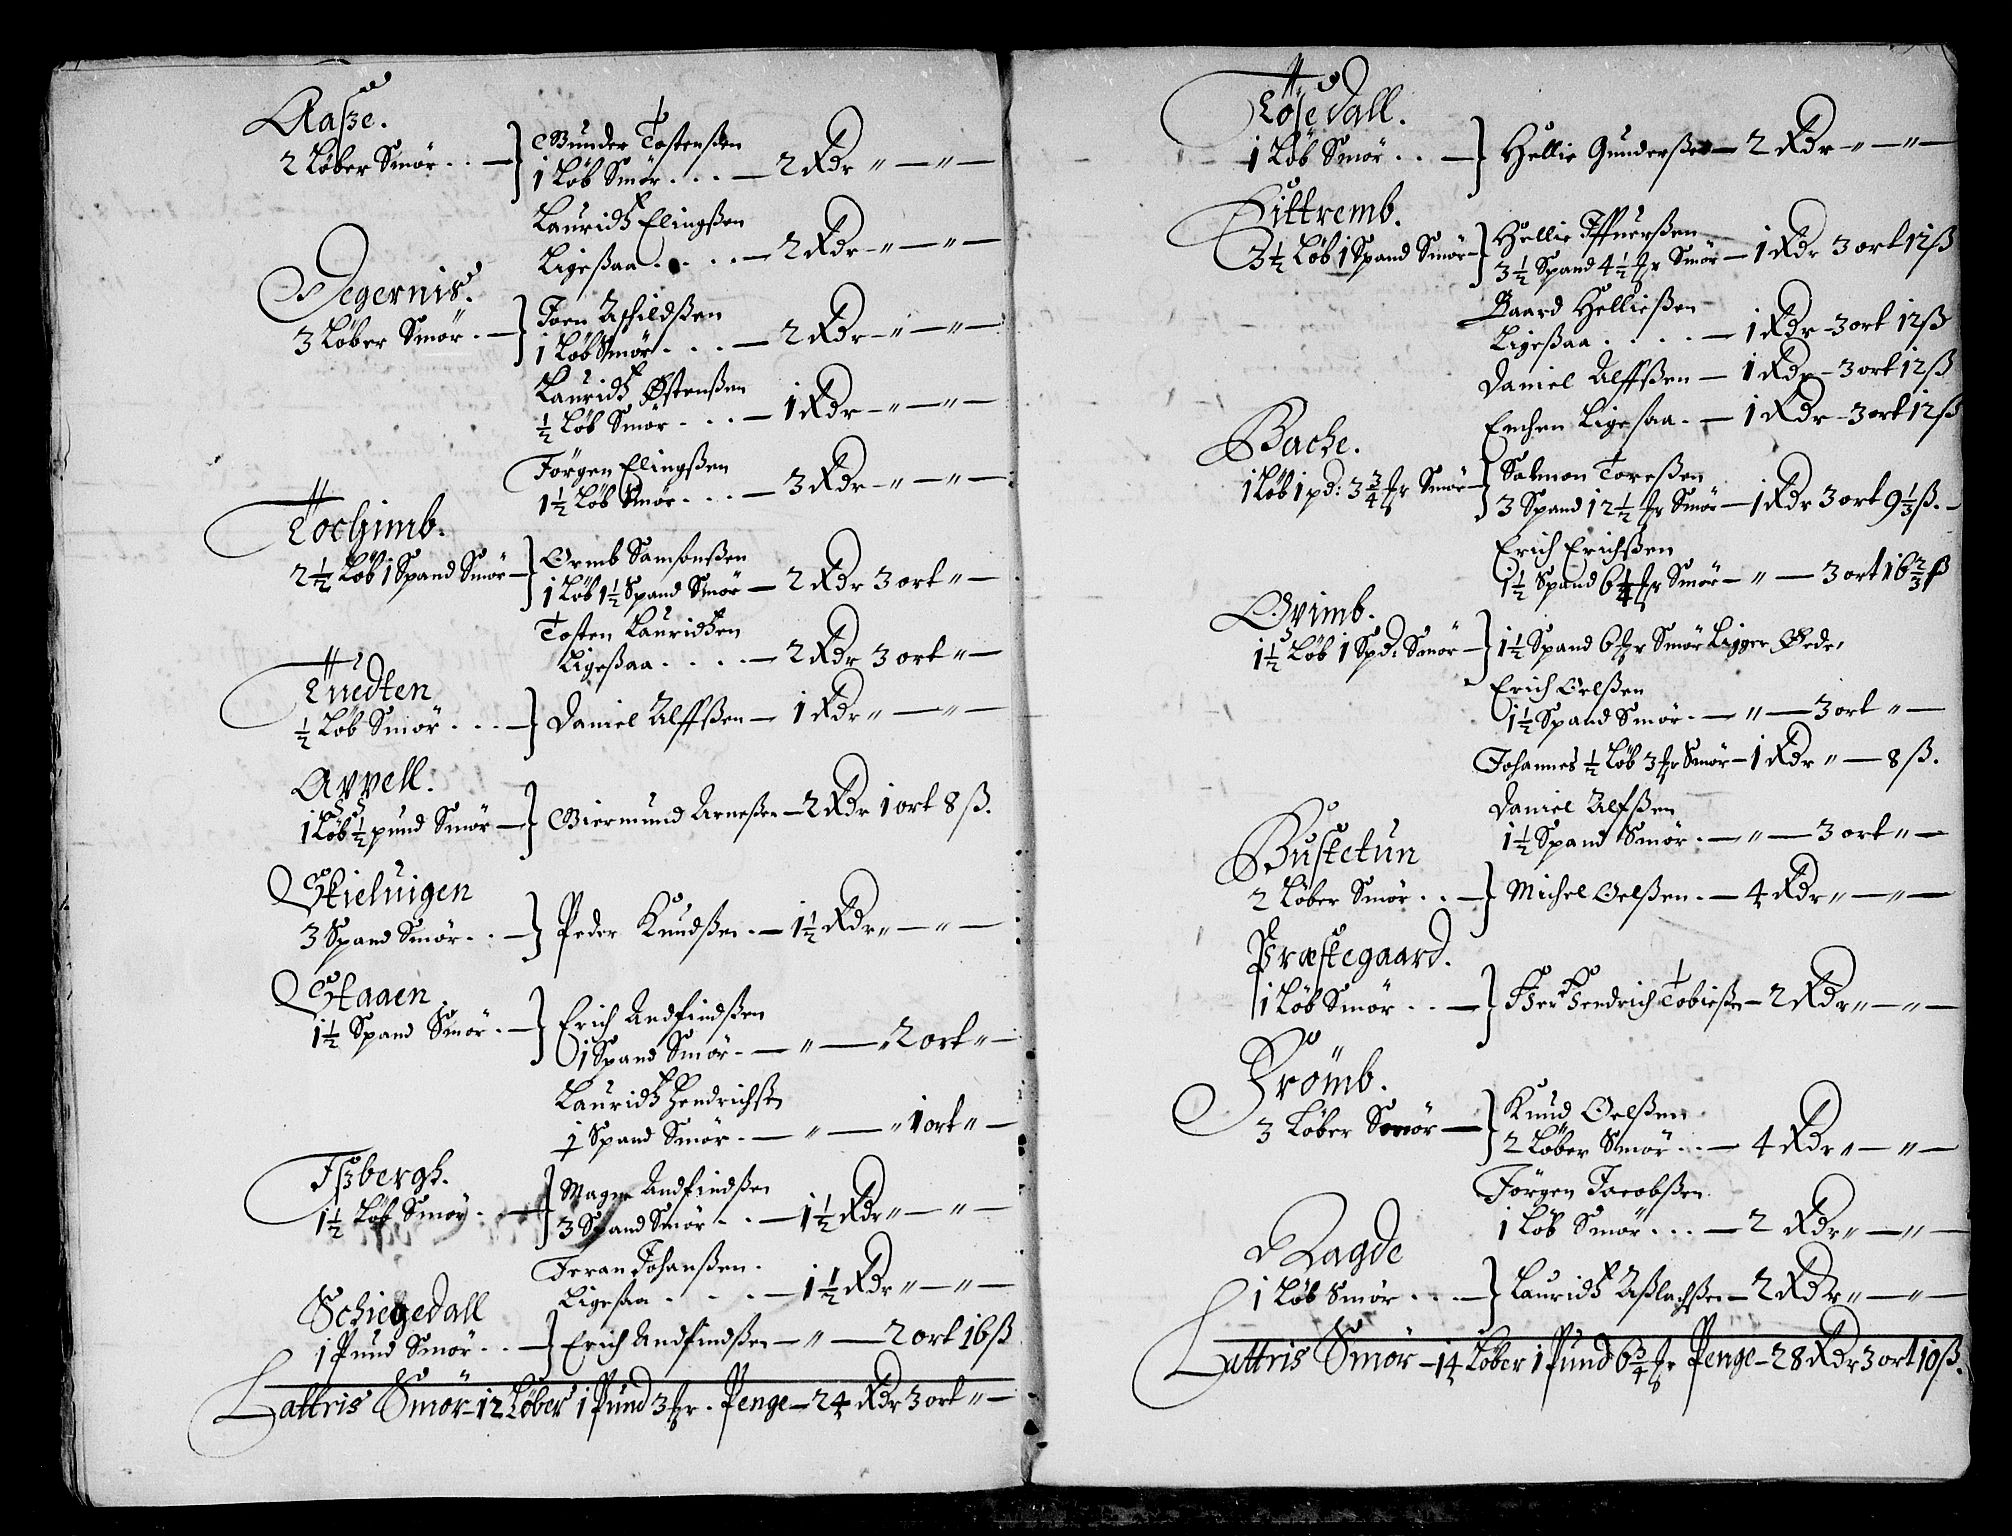 Aasse.
2 Løber Smør . . — Gunder Tostensen
1 Løb Smør . . . — 2 Rdr „ — „ —
Lauridtz Elingsßen
Ligeßaa . . . . — 2 Rdr — „ — „ —
Degernis.
3 Løber Smør . — Joen Aschildßen
1 Løb Smør . . . — 2 Rdr — „ — „ —
Lauridtz Østenßen
½ Løb Smør . . . — 1 Rdr — „ — „ —
Jørgen Elingßen
1½ Løb Smør . . . — 3 Rdr — „ — „ —
Tochimb.
2½ Løb 1 Spand Smør — Ormb Samsonßen
1 Løb 1½ Spand Smør — 2 Rdr 3 ort „ —
Tosten Lauridtzen
Ligeßaa . . . . — 2 Rdr 3 ort „ —
Tuedten
½ Løb Smør . . . — Daniel Alffßen — 1 Rdr „ — „ —
Arvell.
1 Løb ½ pund Smør — Giermund Arneßen — 2 Rdr 1 ort 8 ß.
Skieluigen
3 Spand Smør . . — Peder Knudßen . — 1½ Rdr „ — „ —
Staaen
1½ Spand Smør . — Erich Andfindßen
1 Spand Smør . — „ — „ 2 ort „ —
Lauridtz Hendrichsen
½ Spand Smør . — „ — „ 1 ort „ —
Ißbergh.
1½ Løb Smør . — Magne Andfindßen
3 Spand Smør . . — 1½ Rdr „ — „ —
Joran Johanßen .
Ligesaa . . . . — 1½ Rdr „ — „ —
Schiegedall
1 Pund Smør . . — Erich Andfindßen — „ — 2 ort 16 ß
Lattris Smør — 12 Løber 1 Pund 3 mr . Penge — 24 Rdr 3 ort „ —
Tøsedall.
1 Løb Smør . . . — Hellie Gunderßen — 2 Rdr „ — „ —
Sittremb.
3½ Løb 1 Spand Smør — Hellie Iffuerßen
3½ Spand 4½ mr Smør — 1 Rdr 3 ort 12 ß
Baard Helließen
Ligeßaa . . . . — 1 Rdr — 3 ort 12 ß
Daniel Alffßen — 1 Rdr — 3 ort 12 ß
Enchen Ligesaa . — 1 Rdr — 3 ort 12 ß
Bache.
1 Løb 1 pd: 3¾ mr Smør — Salmon Toreßen
3 Spand 12½ mr Smør — 1 Rdr 3 ort 9⅓ ß. —
Erich Erichßen
1½ Spand 6¼ mr Smør — „ — 3 ort 16⅔ ß
Qvimb.
1½ Løb 1 Spd: Smør — 1½ Spand 6 mr Smør Ligger Øede,
Erich Oelßen
1½ Spand Smør . — „ — 3 ort „ —
Johannes ½ Løb 3 mr Smør — 1 Rdr „ — 8 ß.
Daniel Alfßen
1½ Spand Smør . — „ — 3 ort „ —
Bustetun
2 Løber Smør . . — Michel Oelßen . — 4 Rdr „ — „ —
Præstegaard.
1 Løb Smør . . — Her Hendrich Tobießen — 2 Rdr „ — „ —
Frømb.
3 Løber Smør — Knud Oelßen
2 Løber Smør . . — 4 Rdr „ — „ —
Jørgen Jacobßen
1 Løb Smør . . . — 2 Rdr „ — „ —
Ragde
1 Løb Smør . . . — Lauridtz Aßlachßen — 2 Rdr „ — „ —
Lattris Smør — 14 Løber 1 Pund 6¾ mr Penge — 28 Rdr 3 ort 10 ß.